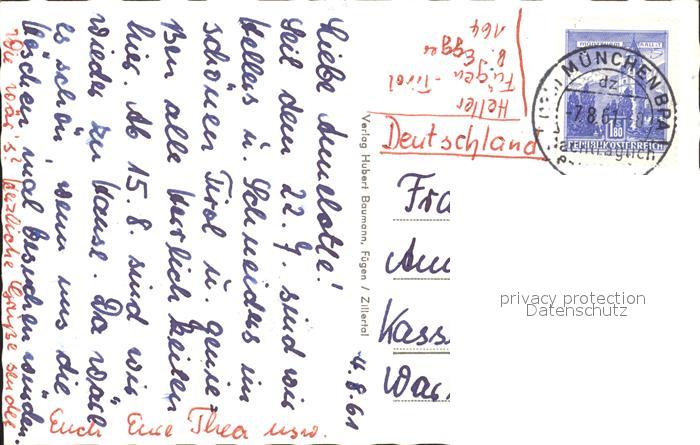 Liebe Annelotte!
Seit dem 22.7. sind wir
Hellers u. Schneiders im
schönen Tirol u. genie=
ßen alle herrlich Zeiten
hier. Ab 15.8. sind wir
wieder zu Hause. Da wär
es schön, wenn uns die
mal besuchen würden.
Wie wär's? herzliche Grüße sendet
Euch Eure Thea usw.
4.8.61
Verlag Hubert Baumann, Fügen / Zillertal
Heller
Fügen - Tirol
b. Egger
164
Deutschland
MÜNCHEN BPA
dz
-7.8.61
1.80
REPUBLIK ÖSTERREICH
Kass
privacy protection
Datenschutz